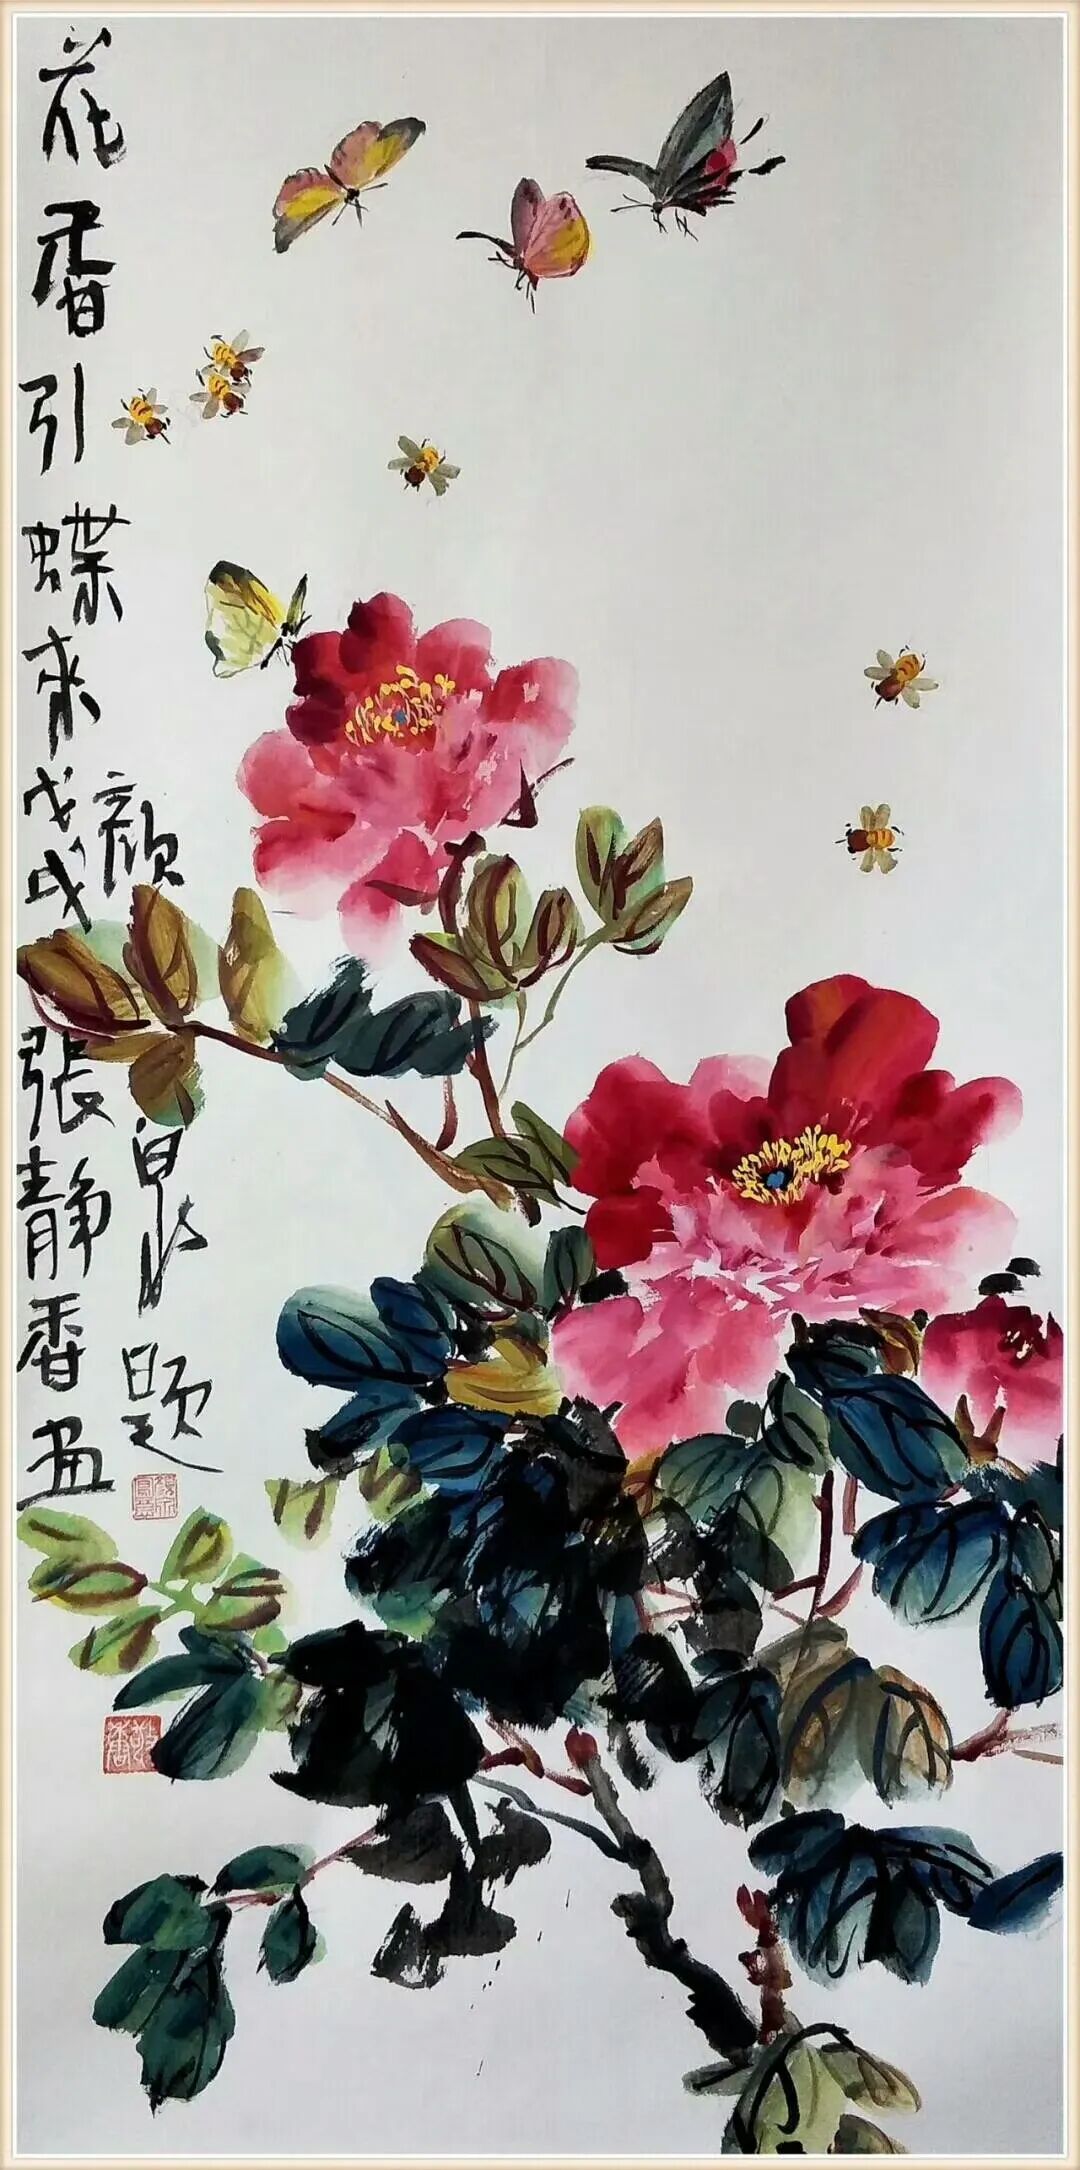 花香引蝶来戊戌張静香画
颜
题